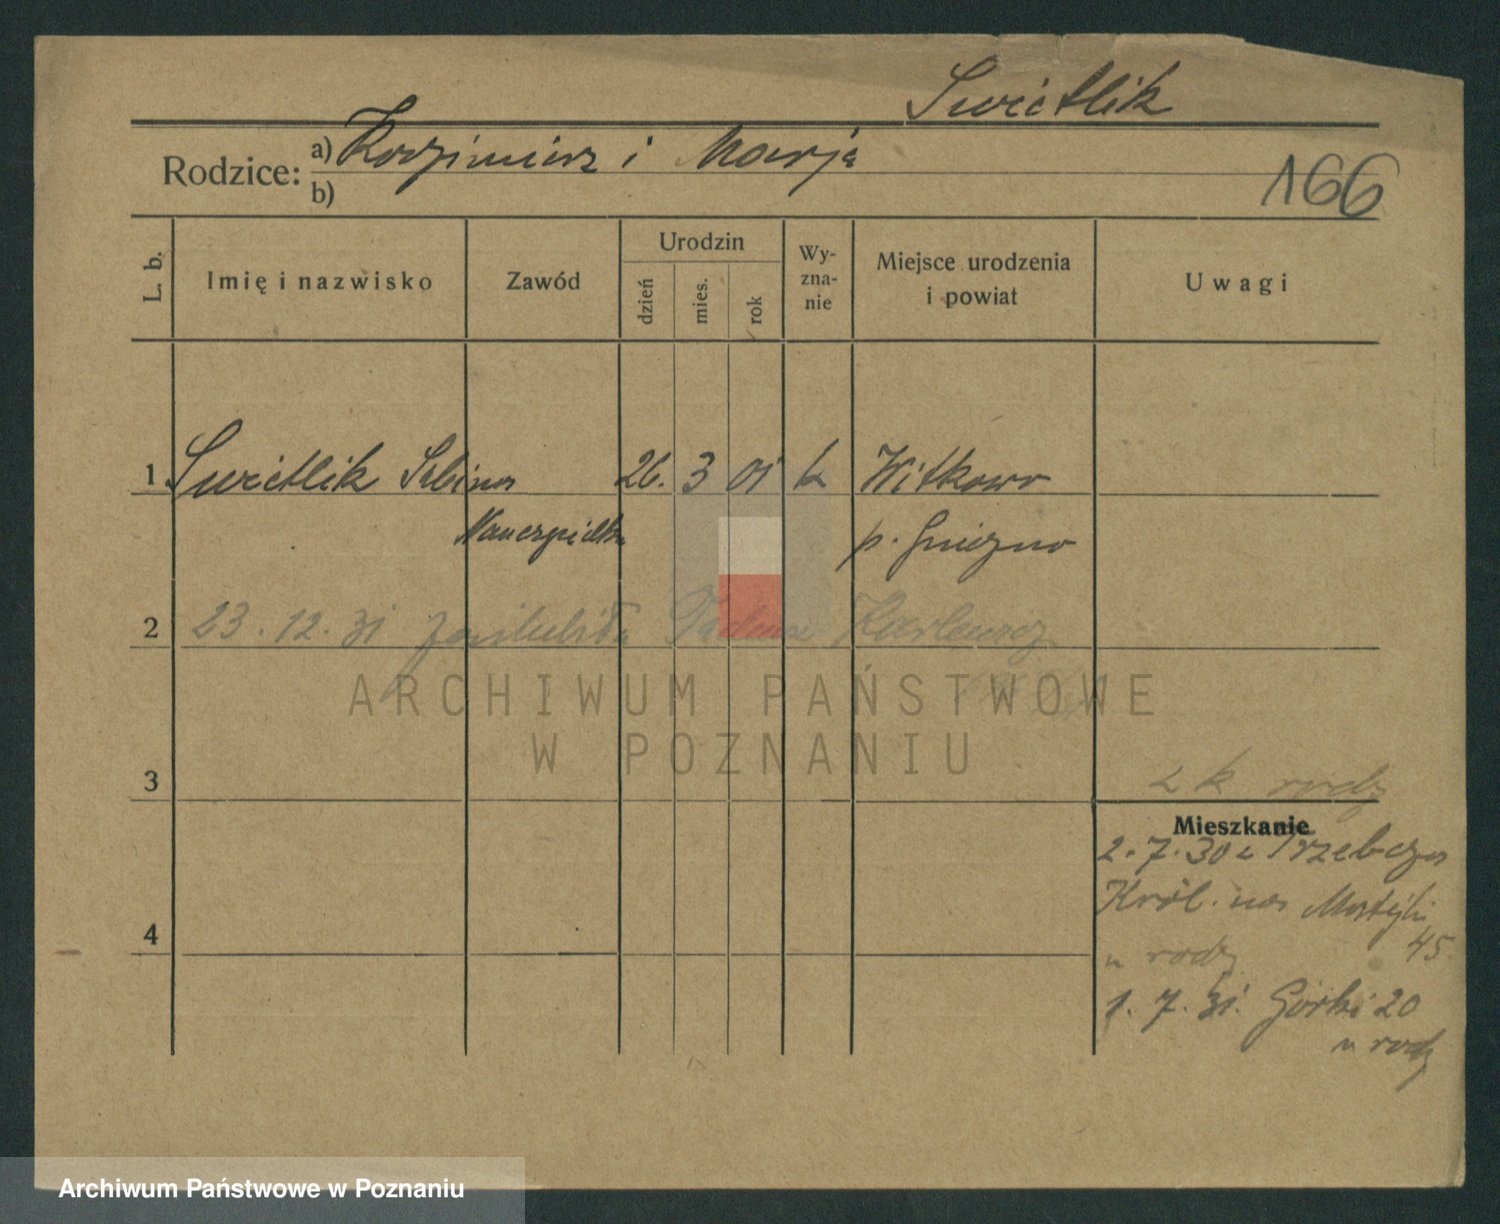 Swietlik
Rodzice: a) Kazimierz i Marja
b)
166
L. b.
Imię i nazwisko
Zawód
Urodzin
dzień
mies.
rok
Wy-
zna-
nie
Miejsce urodzenia
i powiat
Uwagi
1 Swietlik 26. 3 01 k Witkowo
Nauczycielka p. Gniezno
2 23.12.31 zaślubiła
ARCHIWUM PAŃSTWOWE
W POZNANIU
3
Mieszkanie
2.7.30 z
Król. na
45.
4
u rodz
1.7.31. Górki 20
u rodz
Archiwum Państwowe w Poznaniu